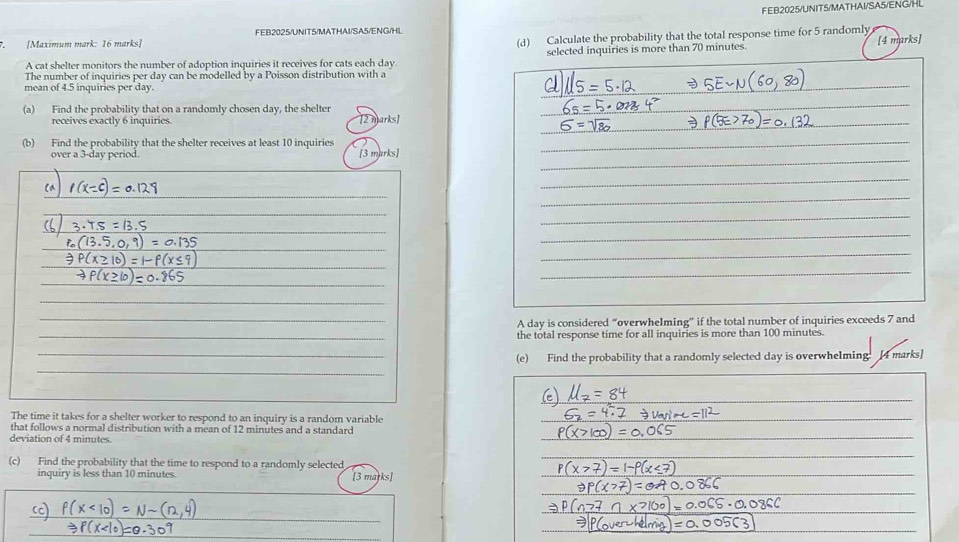 FEB2025/UNIT5/MATHAI/SA5/ENG/HL
7. [Maximum mark: 16 marks]
A cat shelter monitors the number of adoption inquiries it receives for cats each day.
The number of inquiries per day can be modelled by a Poisson distribution with a
mean of 4.5 inquiries per day.
(a) Find the probability that on a randomly chosen day, the shelter
receives exactly 6 inquiries. [2 marks]
(b) Find the probability that the shelter receives at least 10 inquiries
over a 3-day period. [3 marks]
(a) P(X=6) = 0.128
(b) 3·4.5 = 13.5
Po(13.5, 0, 9) = 0.135
⇒ P(X≥10) = 1-P(X≤9)
⇒ P(X≥10) = 0.865
The time it takes for a shelter worker to respond to an inquiry is a random variable
that follows a normal distribution with a mean of 12 minutes and a standard
deviation of 4 minutes.
(c) Find the probability that the time to respond to a randomly selected
inquiry is less than 10 minutes. [3 marks]
(c) P(X<10) = N~(12,4)
⇒ P(X<10)=0.309
FEB2025/UNIT5/MATHAI/SA5/ENG/HL
(d) Calculate the probability that the total response time for 5 randomly
selected inquiries is more than 70 minutes. [4 marks]
d) μ5 = 5·12 ⇒ 5E~N(60, 80)
σ5 = 5· 4²
σ = √80 ⇒ P(5E>70)=0.132
A day is considered "overwhelming" if the total number of inquiries exceeds 7 and
the total response time for all inquiries is more than 100 minutes.
(e) Find the probability that a randomly selected day is overwhelming. [4 marks]
(e) μ7 = 84
σ7 = 4²·7 ⇒ =112
P(X>100) = 0.065
P(X>7) = 1-P(X≤7)
⇒P(X>7) = 0.0866
⇒ P(n>7 ∩ X>100) = 0.065·0.0866
⇒ P(overwhelming) = 0.00563